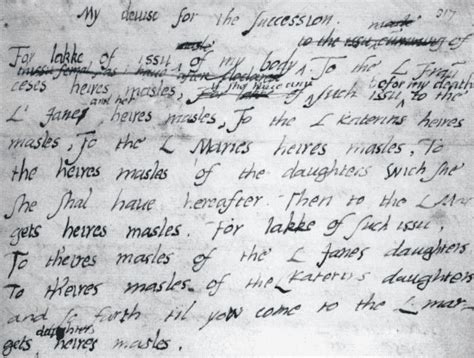 My deuise for the succession. 317
For lakke of issu masle of my body to the issu cumming of
issu femal, as i have after declared To the L Frau
ceses heires masles, For lakke of if she have any such issu befor my death to the
L' Janes and her heires masles, To the L Katerins heires
masles, To the L Maries heires masles, To
the heires masles of the daughters wich she
she shal have hereafter. Then to the L Mar
gets heires masles. For lakke of such issu,
To theires masles of the L Janes daughters
To theires masles of the L Katerins daughters
and so forth til yow come to the L Mar
gets daughters heires masles.